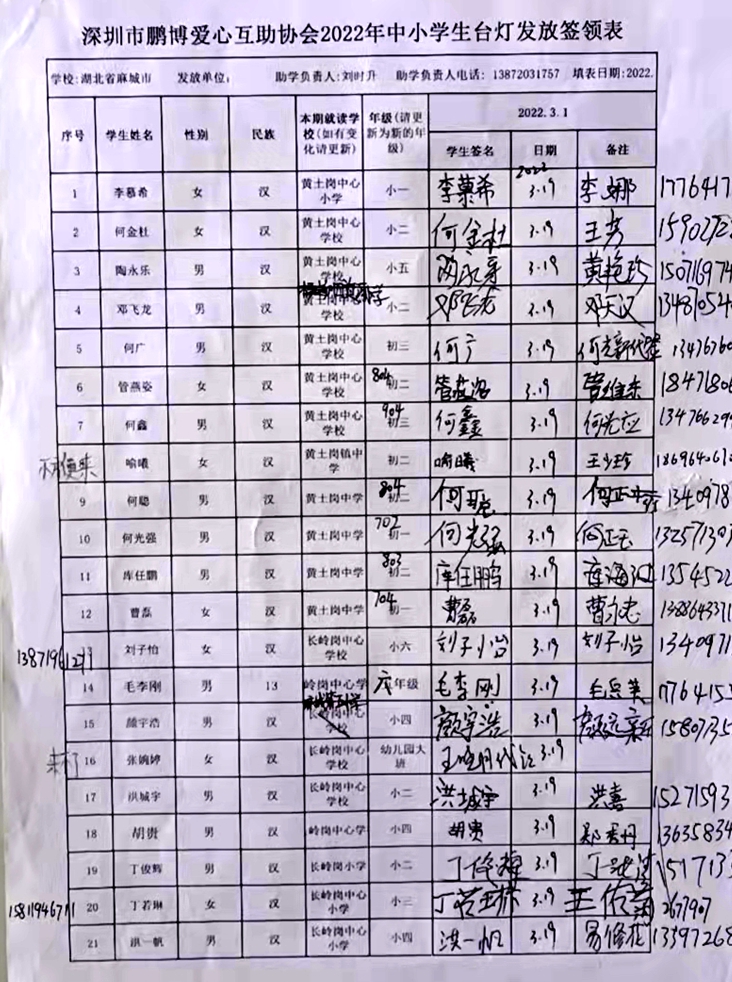 深圳市鹏博爱心互助协会2022年中小学生台灯发放签领表
学校:湖北省麻城市 发放单位: 助学负责人:刘时升 助学负责人电话: 13872031757 填表日期:2022.
序号 学生姓名 性别 民族 本期就读学校(如有变化请更新) 年级(请更新为新的年级) 2022.3.1
学生签名 日期 备注
1 李慕希 女 汉 黄土岗中心小学 小一 李慕希 2022 3.19 李娜 1776417
2 何金杜 女 汉 黄土岗中心学校 小二 何金杜 3.19 王芳 15902722
3 陶永乐 男 汉 黄土岗中心学校 小五 3.19 黄艳珍 150716974
4 邓飞龙 男 汉 黄土岗中心学校 小二 邓飞龙 3.19 邓天汉 134870540
5 何广 男 汉 黄土岗中心学校 初三 何广 3.19 1347676
6 管燕姿 女 汉 黄土岗中心学校 804 初二 管燕姿 3.19 管维东 18471806
7 何鑫 男 汉 黄土岗中心学校 904 初三 何鑫 3.19 何光应 134766299
喻曦 女 汉 黄土岗镇中学 初二 喻曦 3.19 王少珍
9 何聪 男 汉 黄土岗中学 804 初二 何聪 3.19 1340978
10 何光强 男 汉 黄土岗中学 702 初一 何光强 3.19 132571307
11 库任鹏 男 汉 黄土岗中学 803 初二 库任鹏 3.19 1354522
12 曹磊 女 汉 黄土岗中学 704 初一 曹磊 3.19 曹立志
13 刘子怡 女 汉 长岭岗中心学校 小六 刘子怡 3.19 刘子怡 1340971
14 毛李刚 男 13 岭岗中心学 六年级 毛李刚 3.19 1776415
15 颜宇浩 男 汉 长岭岗中心学校 小四 颜宇浩 3.19 15807735
16 张婉婷 女 汉 长岭岗中心学校 幼儿园大班 3.19
17 洪城宇 男 汉 长岭岗中心学校 小二 洪城宇 3.19 洪喜 15271593
18 胡贵 男 汉 岭岗中心学 小四 胡贵 3.19 郑秀丹 13635834
19 丁俊辉 男 汉 长岭岗小学 小二 丁俊辉 3.19 151713
15811946711 20 丁若琳 女 汉 长岭岗中心小学 小三 丁若琳 3.19 267907
21 洪一帆 男 汉 长岭岗中心小学 小四 洪一帆 3.19 易修花 13397268